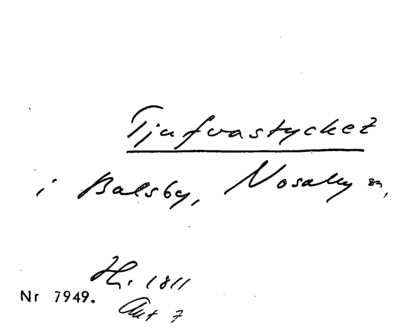 Tjufvastycket
i Balsby, Nosaby sn,
H. 1811
Nr 7949.
Akt 7